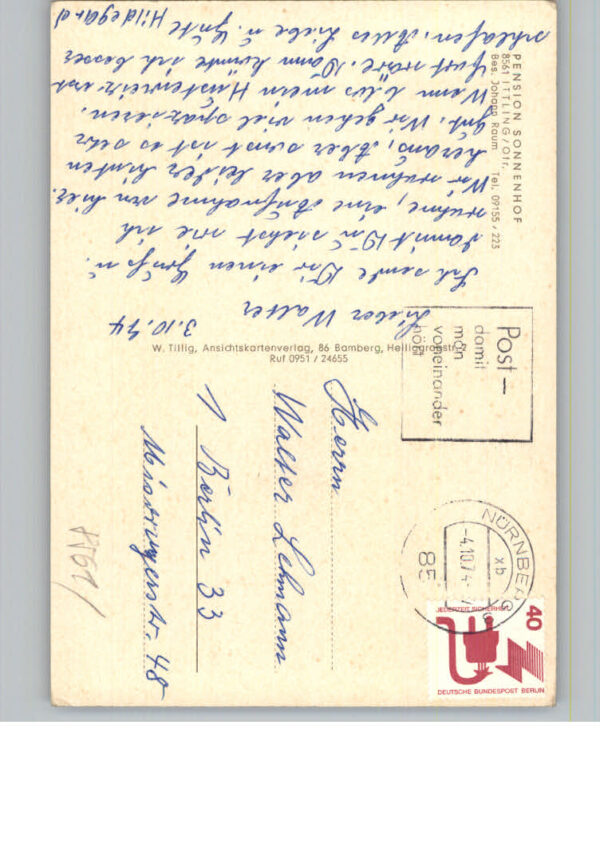 PENSION SONNENHOF
8561 ITTLING/Ofr.
Bes. Johann Raum Tel. 09155 / 223
3.10.74
Lieber Walter
Ich sende Dir einen Gruß u.
damit Du siehst wie ich
wohne, eine Aufnahme von hier.
Wir wohnen aber leider hinten
heraus, Aber sonst ist es sehr
gut. Wir gehen viel spazieren.
Wenn bloß mein Hustenreiz erst
fort wäre. Dann könnte ich besser
schlafen. Alles Liebe u. Gute
Hildegard
W. Tillig, Ansichtskartenverlag, 86 Bamberg, Heiliggrabstr.
Ruf 0951 / 24655
Post—
damit
man
voneinander
hört
NÜRNBERG
xb
-4.10.74
85
40
JEDERZEIT SICHERHEIT
DEUTSCHE BUNDESPOST BERLIN
Herrn
Walter Lehmann
1 Berlin 33
48